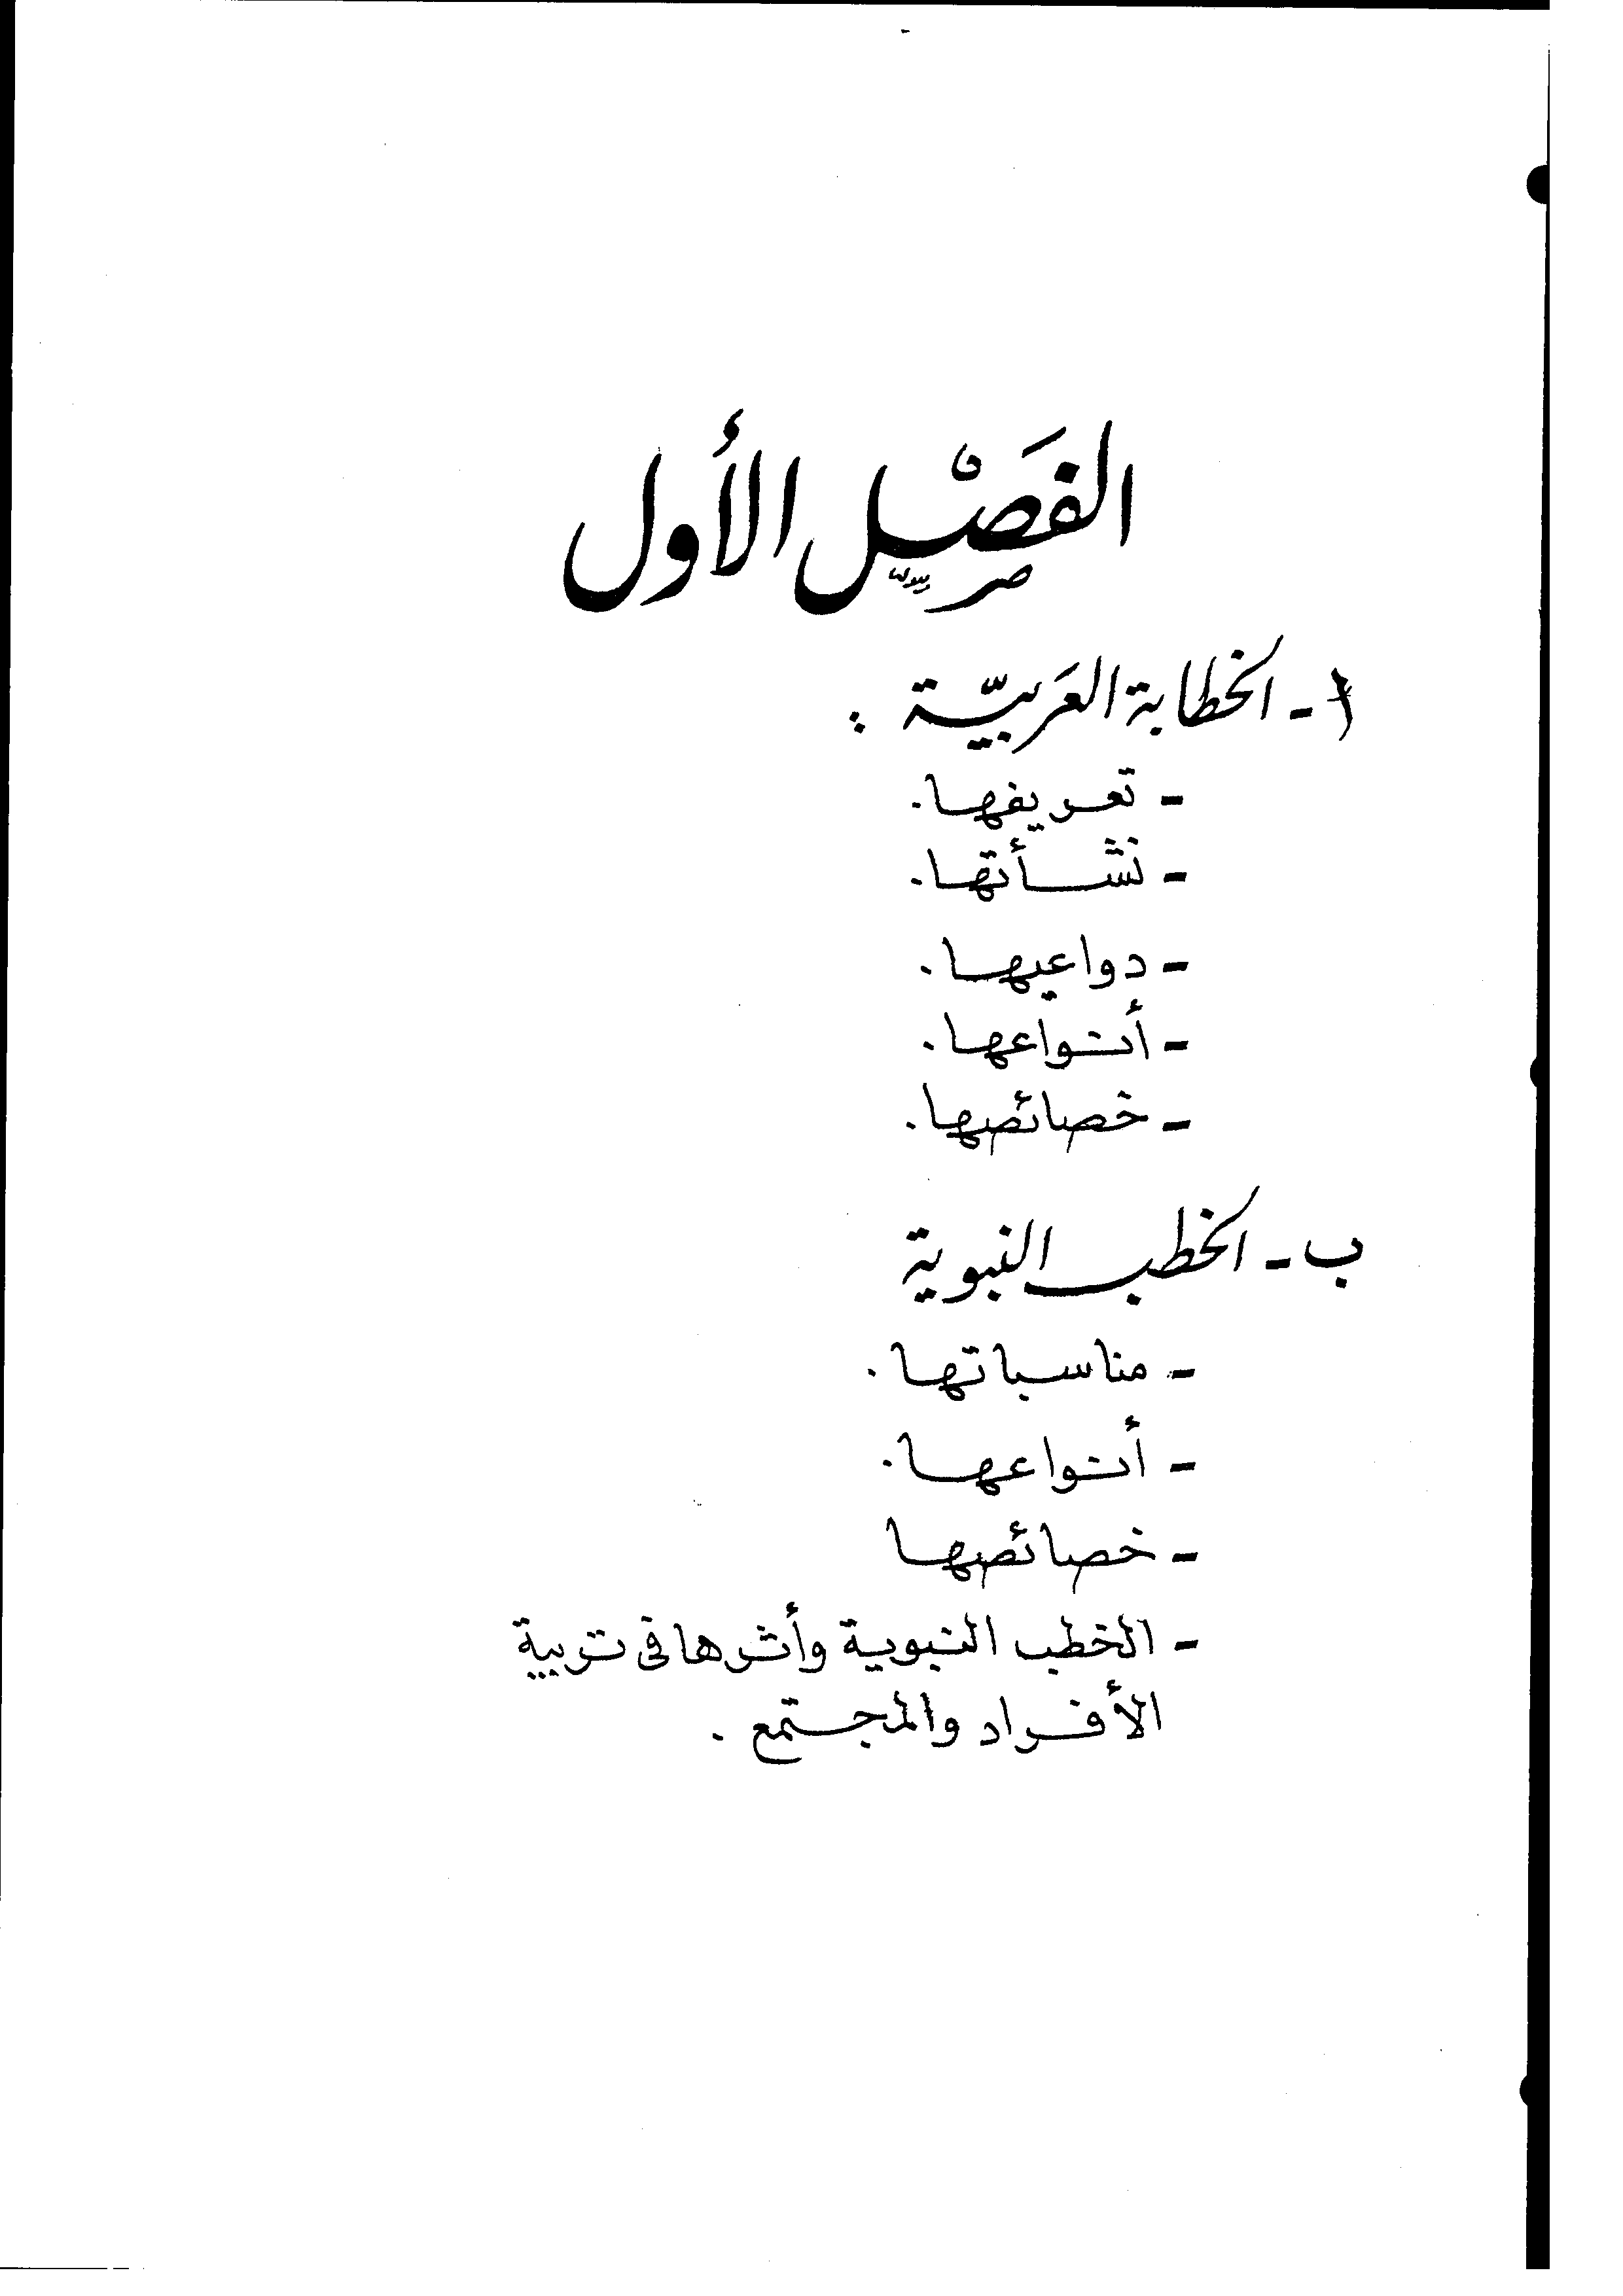 الفَصْل الأول
أ - الخطابة العَربيّة :
- تعريفها.
- نشأتها.
- دواعيها.
- أنواعها.
- خصائصها.
ب - الخطب النبوية
- مناسباتها.
- أنواعها.
- خصائصها
- الخطب النبوية وأثرها في تربية
الأفراد والمجتمع.